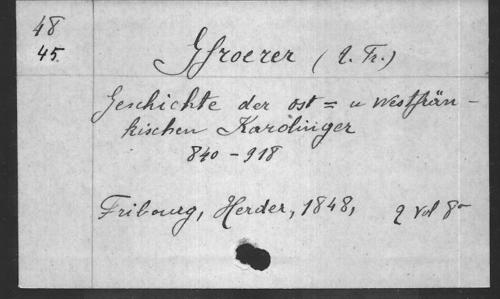 48
45.
Gfroerer (A. Fr.)
Geschichte der ost = u westfrän-
kischen Karolinger
840 - 918
Fribourg, Herder, 1848, 2 vol 8°